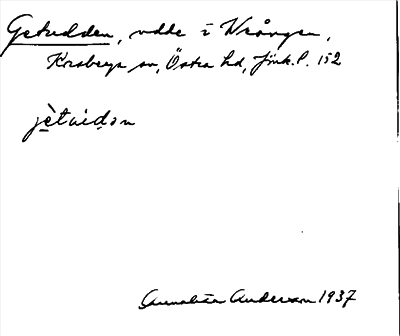 Getudden, udde i Vrången,
Korsberga sn, Östra hd, Jönk. l. 152
jètuidən
Annalisa Andersson 1937